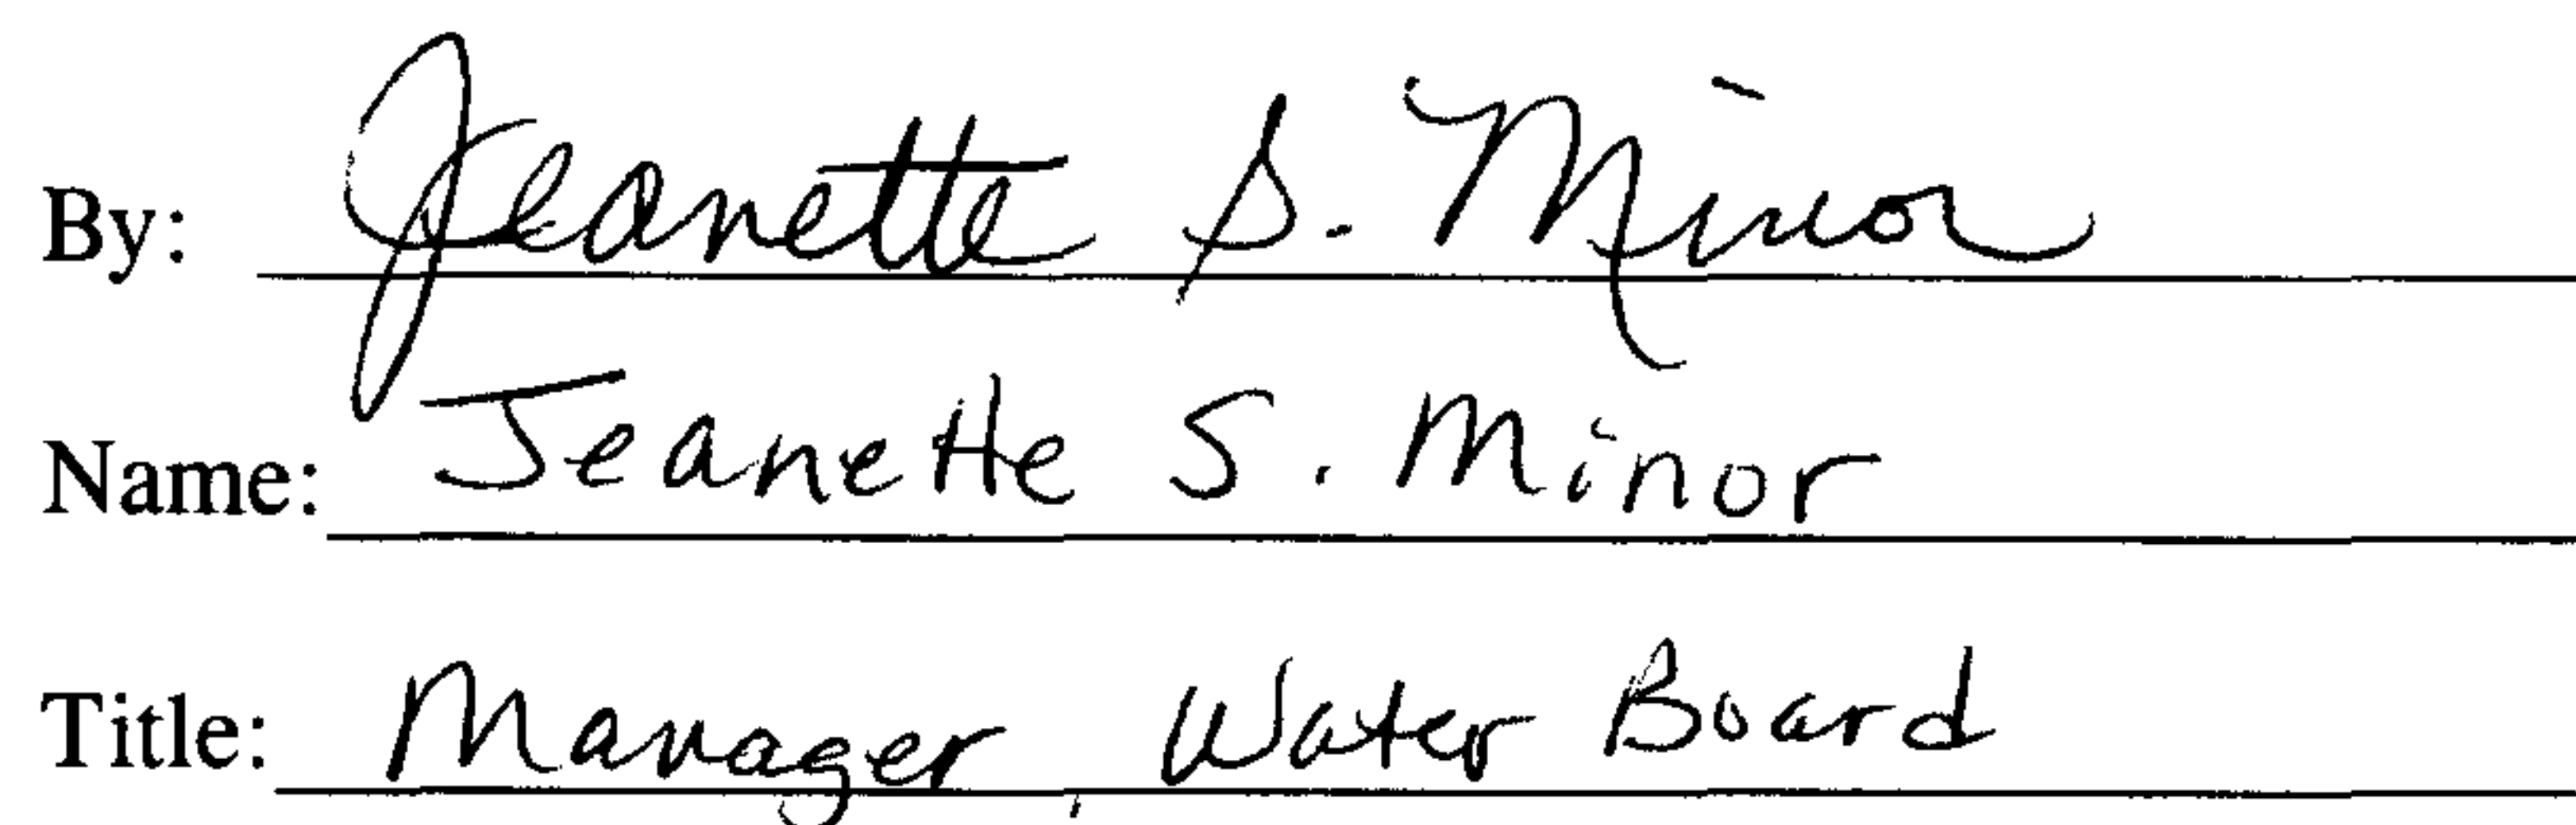 By: Jeanette S. Minor
Name: Jeanette S. Minor
Title: Manager, Water Board